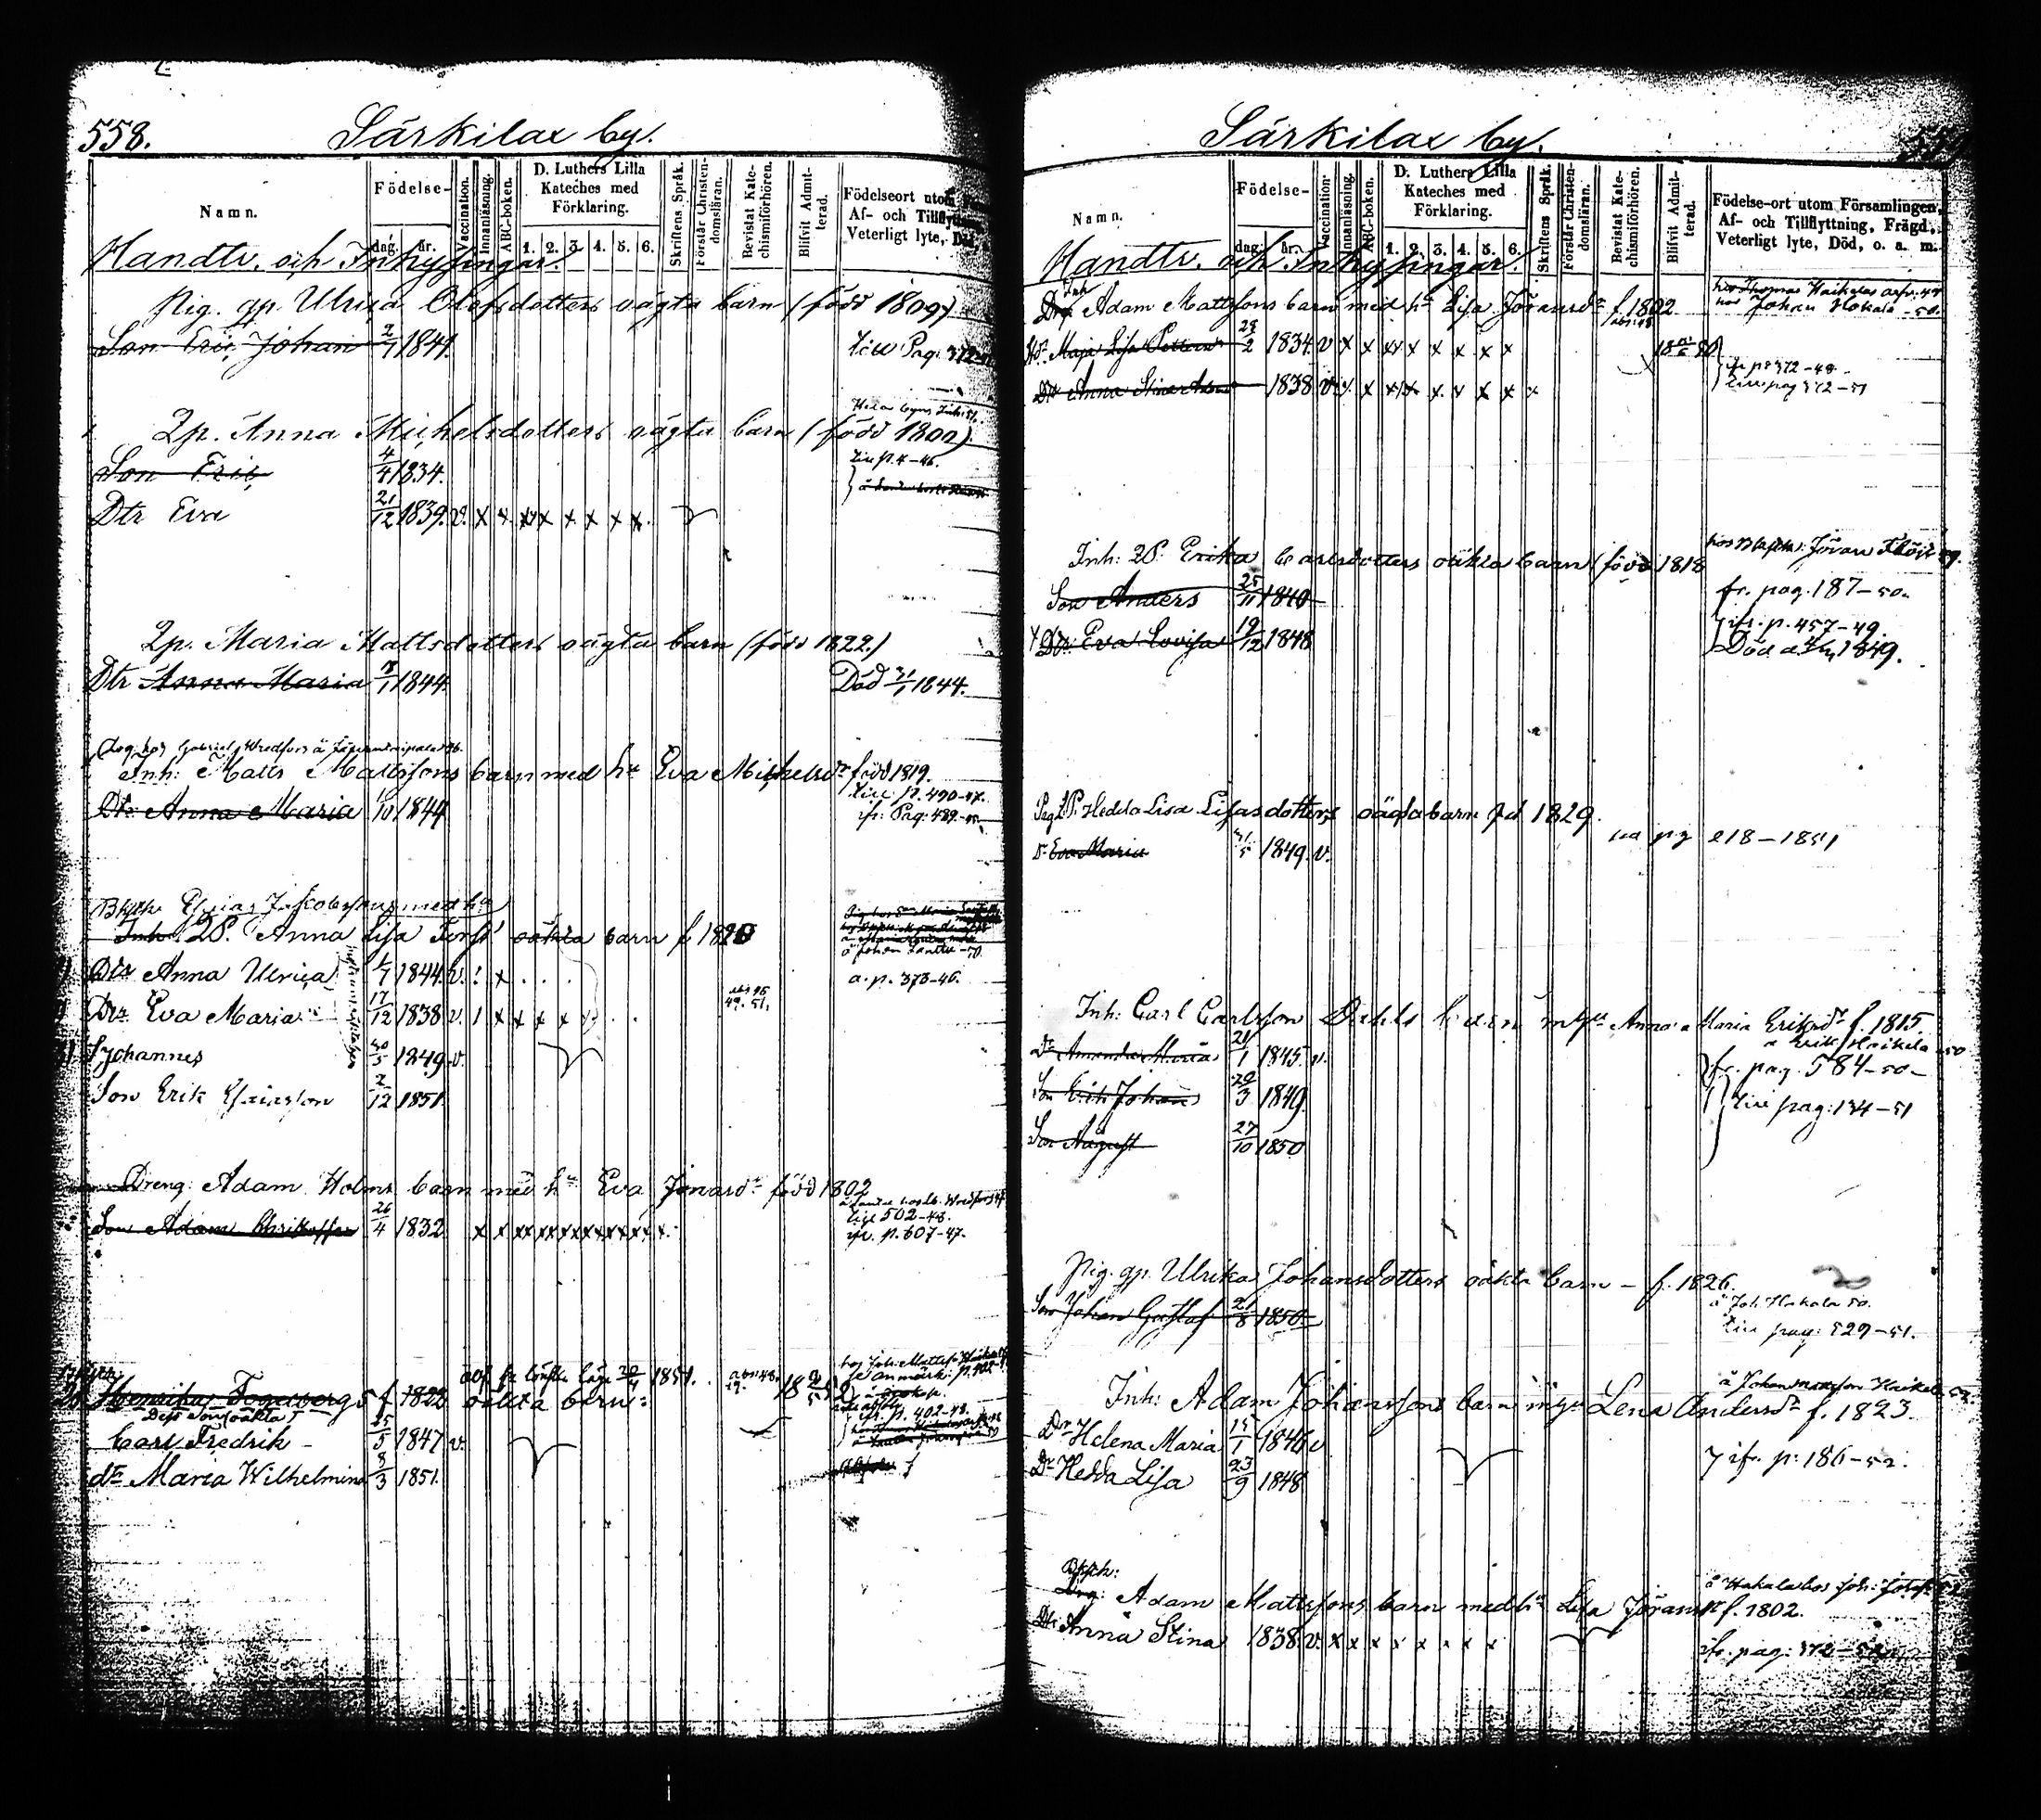 558.
Särkilax by.
Namn.
Födelse-
dag. år.
Vaccination.
Innanläsning.
ABC-boken.
D. Luthers Lilla Kateches med Förklaring.
1. 2. 3. 4. 5. 6.
Skriftens Språk.
Förstår Christen-domsläran.
Bevistat Kate-chismiförhören.
Blifvit Admit-terad.
Födelseort utom
Af- och Tillflyttning
Veterligt lyte, Död
Handtv. och Inhysingar.
Pig. gp. Ulrica Olofsdotters oägta barn (född 1809)
Son Eric Johan 2/1 1841. till Pag. 372
Qp. Anna Michelsdotters oägta barn (född 1802)
Son Eric 4/4 1834. till p. 4-46.
Dtr Eva 21/12 1839. v. x x x x x x x x
Qp. Maria Mattsdotters oägta barn (född 1822.)
Dtr Anna Maria 1/1 1844. Död 31/1 1844.
Inh: Matts Mattssons barn med hu Eva Michelsdr född 1819.
till p. 490-47.
Dtr Anna Maria 1/10 1844 ifr. Pag: 489-45
Inh. QP. Anna Lisa Forss oäkta barn f. 1820
Dtr Anna Ulrica 1/7 1844. v. ! x . . . a. p. 373-46.
Dtr Eva Maria 17/12 1838 v. 1 x x x x 49. 51.
S Johannes 30/5 1849. v.
Son Erik Eliasson 2/12 1851.
Dreng: Adam Holms barn med hu Eva Jonasdr född 1802
Son Adam Christoffer 26/4 1832 x x x x x x x x x x x. till 502-48.
ifr. p. 607-47.
Henrika Fogelbergs f. 1822 oäkta barn:
Dess Son (oäkta)
Carl Fredrik 25/5 1847 v. ifr. p. 402-48.
dr Maria Wilhelmina 8/3 1851.
559
Särkilax by.
Namn.
Födelse-
dag. år.
Vaccination.
Innanläsning.
ABC-boken.
D. Luthers Lilla Kateches med Förklaring.
1. 2. 3. 4. 5. 6.
Skriftens Språk.
Förstår Christen-domsläran.
Bevistat Kate-chismiförhören.
Blifvit Admit-terad.
Födelse-ort utom Församlingen,
Af- och Tillflyttning, Frägd,
Veterligt lyte, Död, o. a. m.
Handtv. och Inhysingar.
Inh Adam Mattssons barn med hu Lisa Jöransdr f. 1802
hos Johan Hokala -50.
Maja Lisa 28/2 1834. v x x x x x x x x x
ifr p. 372-48.
Dtr Anna Stina 1838 v. x x x x x x x x x till pag 372-51
Inh: QP. Erika Carlsdotters oäkta barn (född 1818
Son Anders 25/11 1840 fr. pag. 187-50.
Dtr Eva Lovisa 19/12 1848 ifr. p. 457-49.
Död 1849.
QP. Hedda Lisa Lisasdotters oägta barn fd 1829.
Dr Eva Maria 31/5 1849. v. 218-1851
Inh: Carl Carlsson Dahls barn m hu Anna Maria Eriksdr f. 1815.
Erik Haikela 50
Dr Amanda Maria 21/1 1845. v. fr. pag. 584-50-
Son Erik Johan 29/3 1849. till pag: 134-51
Son August 27/10 1850
Pig. gp. Ulrika Johansdotters oäkta barn - f. 1826.
å Joh. Hakala 50.
Son Johan Gustaf 21/8 1850 till pag: 529-51.
Inh: Adam Johanssons barn m hu Lena Andersdr f. 1823.
Dr Helena Maria 15/1 1846 v
Dr Hedda Lisa 23/9 1848 ifr. p: 186-52.
Adam Mattssons barn med hu Lisa Jöransdr f. 1802.
Dtr Anna Stina 1838. v. x x x x x x x x